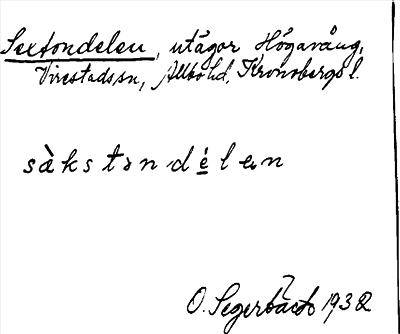 Sextondelen, utägor, Högarång,
Virestads sn, Allbo hd, Kronobergs l.
sàkstɔndélɘn
O. Segerbäck 1932